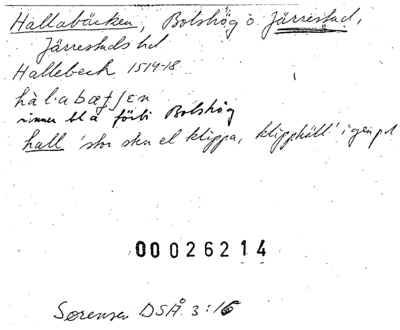 Hallabäcken, Bolshög o. Järrestad,
Järrestads hd
Hallebeck 1514-18
hàl·abæƭʃɛn
rinner bl a förbi Bolshög
hall 'stor sten el klippa, klipphäll' i gen pl
00026214
Sørensen DSÅ 3:16